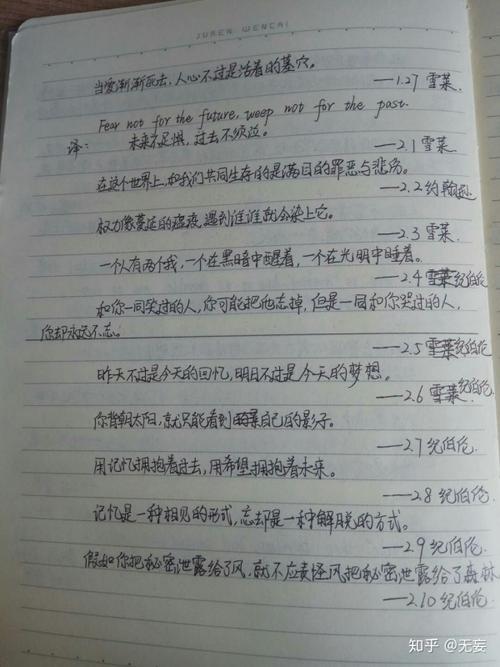 JUREN WENCAI
当爱渐渐死去,人心不过是活着的墓穴。
——1.27 雪莱
Fear not for the future, weep not for the past.
译: 未来不足惧,过去不须泣。
——2.1 雪莱
在这个世界上,和我们共同生存的是满目的罪恶与悲伤。
——2.2 约翰逊
权力像蔓延的瘟疫,遇到谁谁就会染上它。
——2.3 雪莱
一个人有两个我,一个在黑暗中醒着,一个在光明中睡着。
——2.4 雪莱纪伯伦
和你一同笑过的人,你可能把他忘掉,但是一同和你哭过的人,
你却永远不忘。
——2.5 雪莱纪伯伦
昨天不过是今天的回忆,明日不过是今天的梦想。
——2.6 雪莱纪伯伦
你背朝太阳,就只能看到自己的影子。
——2.7 纪伯伦
用记忆拥抱着过去,用希望拥抱着未来。
——2.8 纪伯伦
记忆是一种相见的形式,忘却是一种解脱的方式。
——2.9 纪伯伦
假如你把秘密泄露给了风,就不应责怪风把秘密泄露给了森林
——2.10 纪伯伦
知乎 @无妄